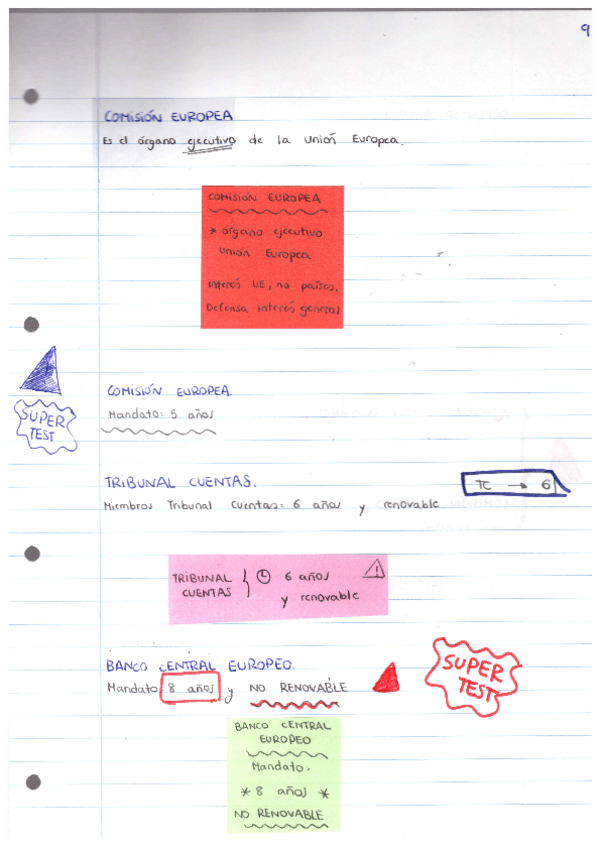 9
COMISIÓN EUROPEA
Es el órgano ejecutivo de la Unión Europea.
COMISIÓN EUROPEA
* órgano ejecutivo
Unión Europea
Interés UE, no países.
Defensa interés general
COMISIÓN EUROPEA.
Mandato: 5 años
SUPER
TEST
TRIBUNAL CUENTAS.
TC → 6
Miembros Tribunal Cuentas: 6 años y renovable
TRIBUNAL
CUENTAS
6 años
y renovable
BANCO CENTRAL EUROPEO.
Mandato: 8 años y NO RENOVABLE
SUPER
TEST
BANCO CENTRAL
EUROPEO
Mandato:
* 8 años *
NO RENOVABLE